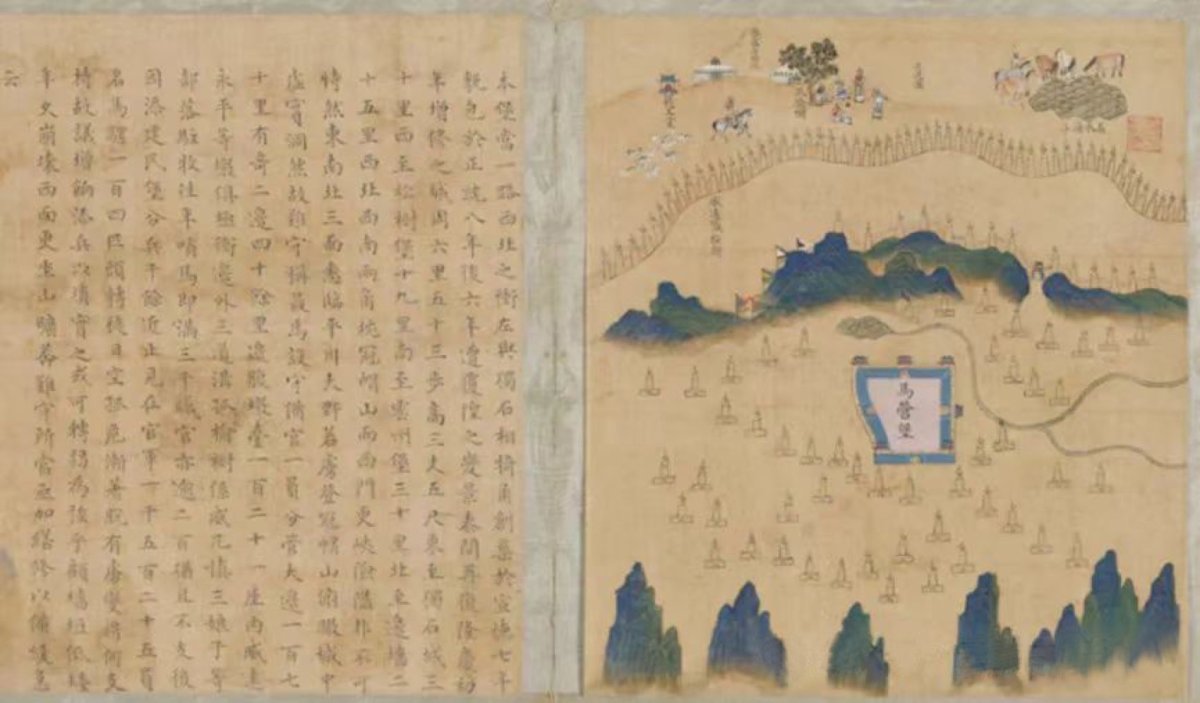 本堡當一路西北之衝左與獨石相犄角創築於宣德七年
包於正統八年後六年遭覆隍之變景泰間再復隆慶初
年增修之城周六里五十三步高三丈五尺東至獨石城三
十里西至松樹堡十九里南至雲州堡三十里北至邊墻二
十五里西北西南兩角冠帽山而西門更峽險隘不可
恃然東南北三面臨平川大野若虜登冠帽山俯瞰城中
虛實洞然故難守稱最焉設守備官一員分管大邊一百七
十里有奇二邊四十餘里邊腹墩臺一百二十一座內威遠
永平等墩俱極衝邊外三道溝孤榆樹係威兀慎三娘子等
部落駐牧往年哨馬即滿三千官亦逾二百猶且不支後
因添建民堡分兵千餘近止見在官軍一千五百二十五員
名馬騾一百四匹頭轉徙日空孤危漸著脫有虜變將何支
持故議增餉添兵以填實之或可轉弱為強乎顧墻垣低矮
年久崩壞西面更坐山曠莽難守所當亟加繕修以備緩急
云
馬營堡